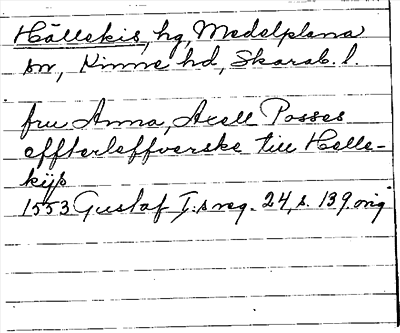 Hällekis, hg, Medelplana
sn, Kinne hd, Skarab. l.
fru Anna, Axell Posses
effterleffverske till Helle-
kijs
1553 Gustaf I:s reg. 24, s. 139 orig